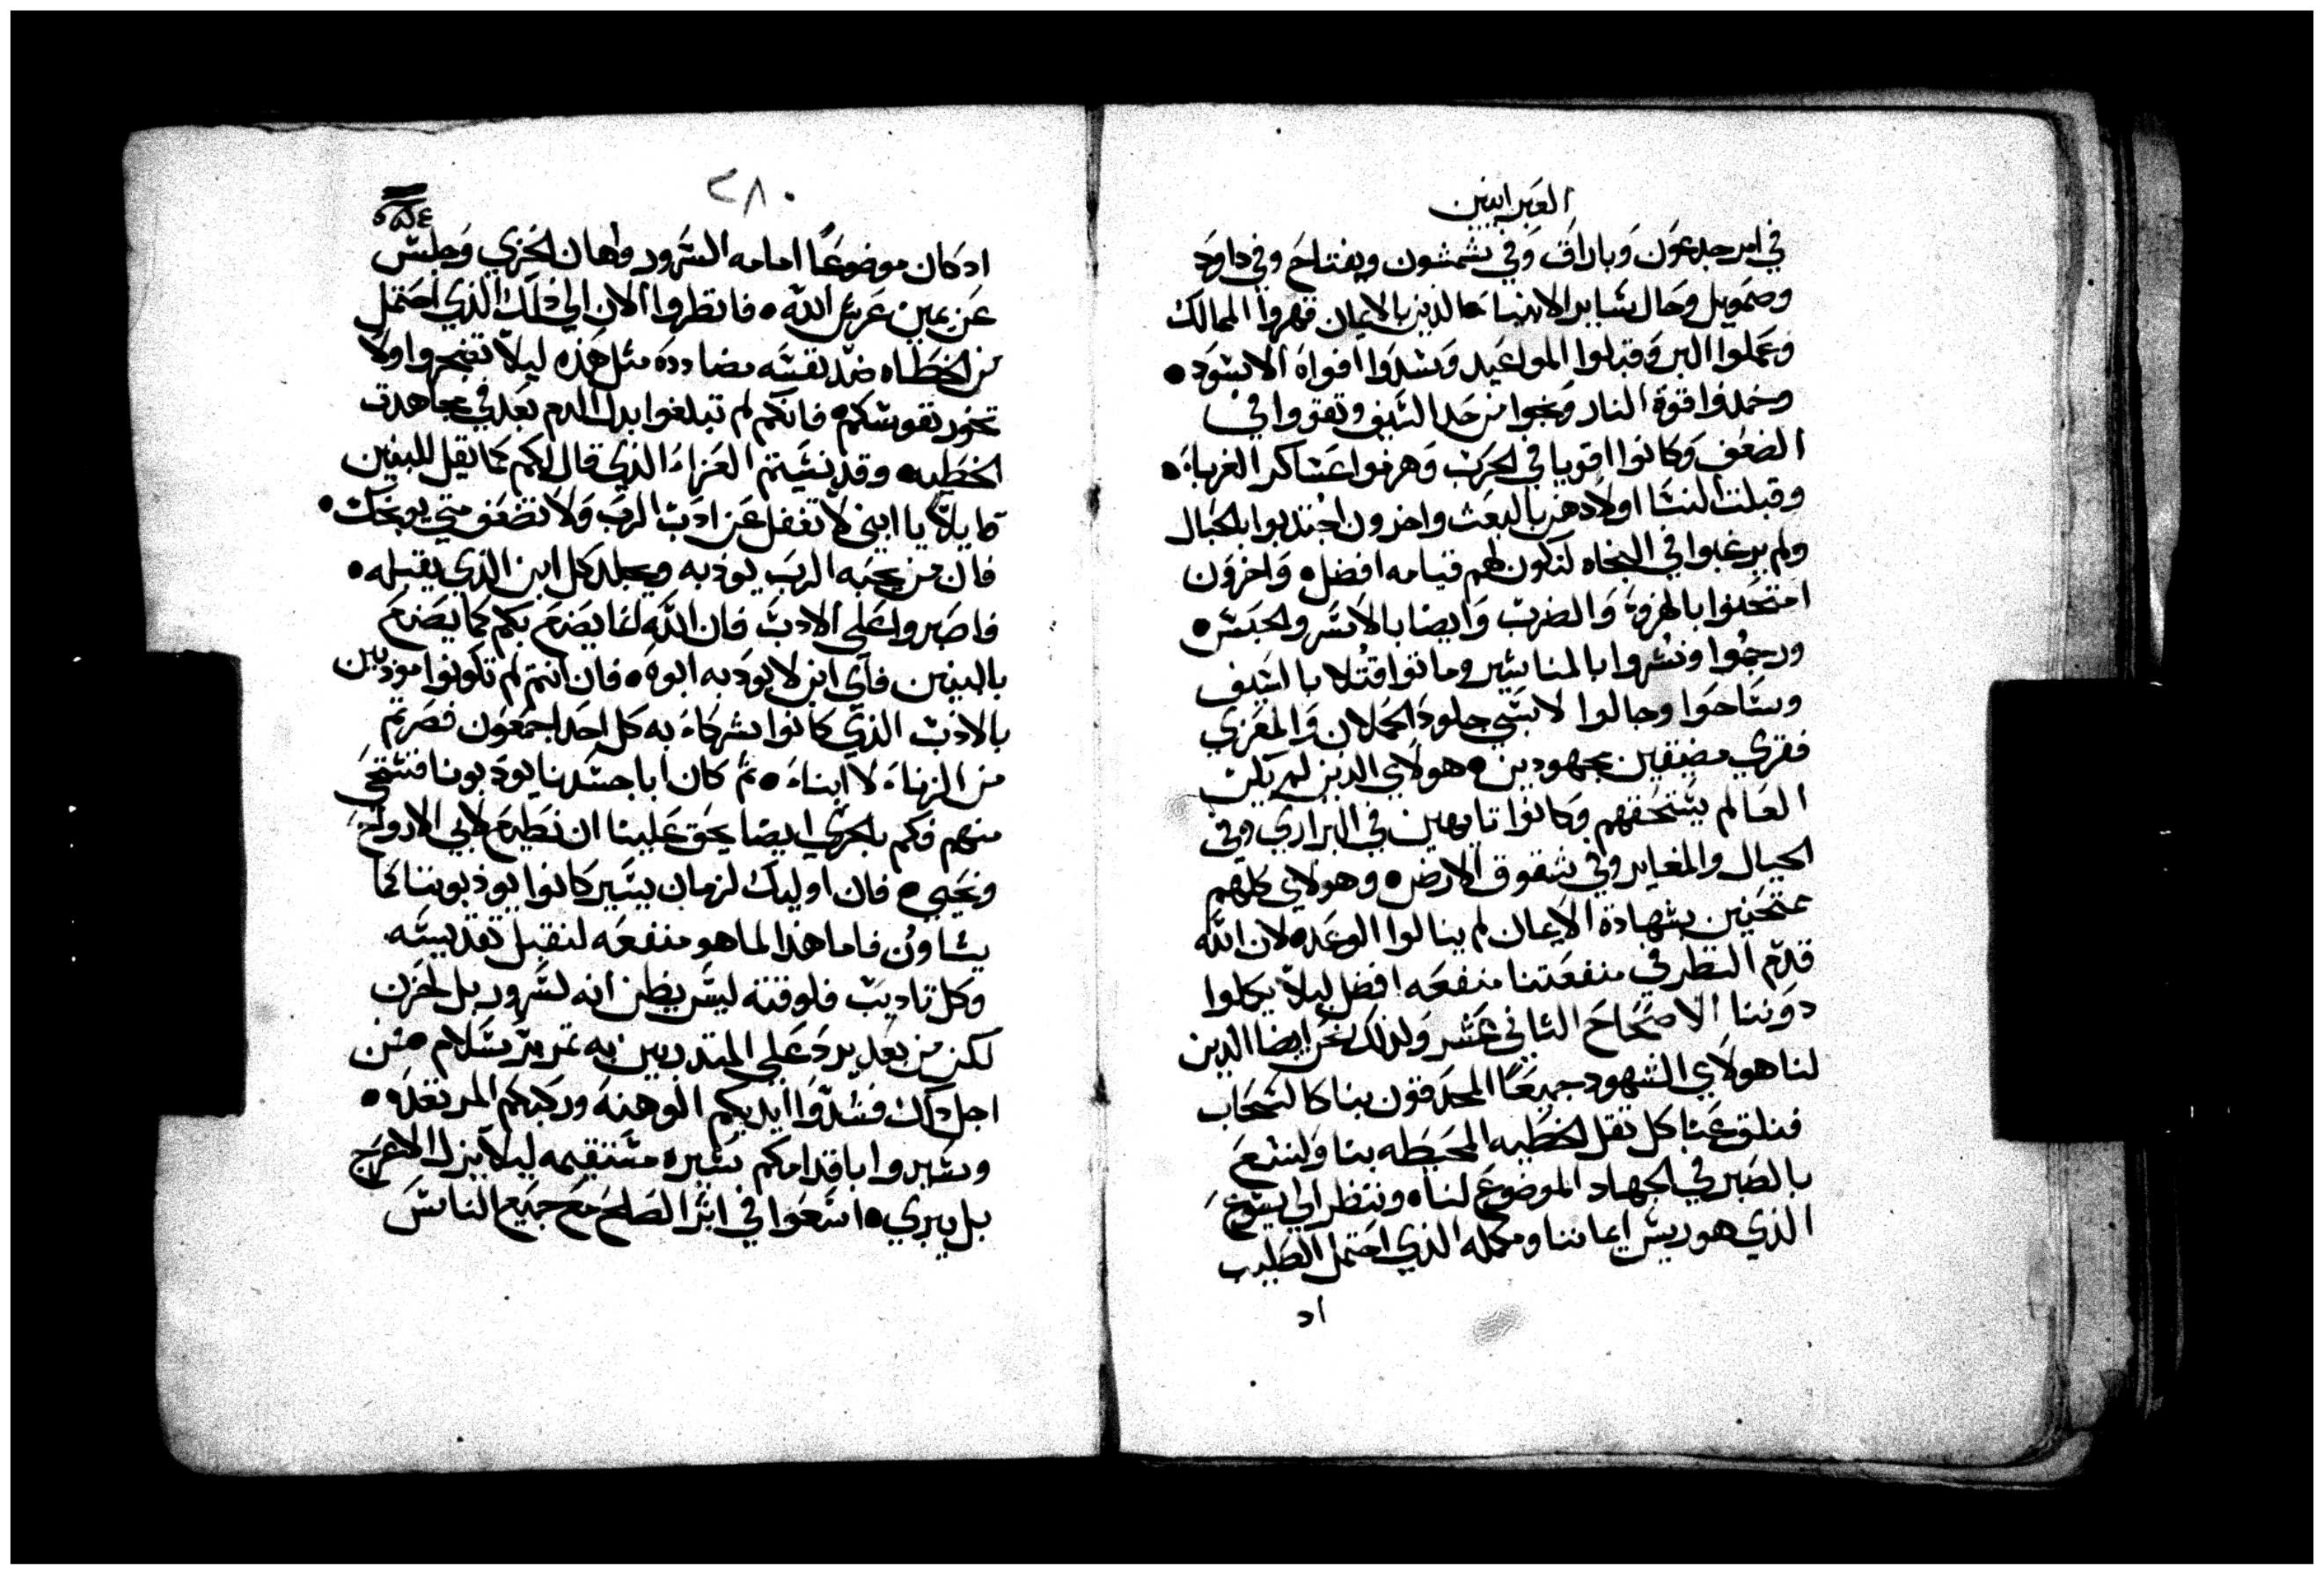 العبرانيين
في امر جدعون وباراق وفي شمشون ويفتاح وفي داود
وصمويل وحال ساير الانبياء الذين بالايمان قهروا الممالك
وعملوا البر وقبلوا المواعيد وسدوا افواه الاسود •
وخمدوا قوة النار ونجوا من حد السيف وتقووا في
الضعف وكانوا اقويا في الحرب وهزموا عساكر الغرباء •
وقبلت النسا اولادهن بالبعث واخرون اجتذبوا بالحبال
ولم يرغبوا في النجاه لتكون لهم قيامه افضل • واخرون
امتحنوا بالهزوة والضرب وايضا بالاسر والحبس •
ورجموا ونشروا بالمناشير وماتوا قتلا بالسيف
وساحوا وجالوا لابسي جلود الحملان والمعزي
فقري مضيقين مجهودين • هولاي الذين لم يكن
العالم يستحقهم وكانوا تايهين في البراري وفي
الجبال والمغاير وفي شقوق الارض • وهولاي كلهم
ممتحنين بشهادة الايمان لم ينالوا الوعد • لان الله
قدم النظر في منفعتنا منفعه افضل ليلا يكملوا
دوننا الاصحاح الثاني عشر ولذلك نحن ايضا الذين
لنا هولاي الشهود جميعا المحدقون بنا كالسحاب
فنلق عنا كل ثقل الخطيه المحيطه بنا ولنسع
بالصبر في الجهاد الموضوع لنا • وننظر الي يسوع
الذي هو ريس ايماننا ومكمله الذي احتمل الصليب
اد
٢٨٠
اد كان موضوعا امامه السرور واهان الخزي وجلس
عن يمين عرش الله • فانظروا الان الي ذلك الذي احتمل
من الخطاه ضد نفسه مضادده مثل هذه ليلا تضجروا ولا
تخور نفوسكم • فانكم لم تبلغوا بدل الدم بعد في مجاهدة
الخطيه • وقد نسيتم العزاء الذي قال لكم كما يقل للبنين
قايلا يا ابني لا تغفل عن ادب الرب ولا تضعف متي يوبخك •
فان من يحبه الرب يودبه ويجلد كل ابن الذي يقبله •
فاصبروا علي الادب فان الله انما يصنع بكم كما يصنع
بالبنين فاي ابن لا يودبه ابوه • فان انتم لم تكونوا مودبين
بالادب الذي كانوا شركاء به كل احد اجمعون فصرتم
من الزناء لا ابناء • ثم كان ابا جسدنا يودبونا فنستحي
منهم فكم بالحري ايضا يحق علينا ان نطيع لابي الارواح
ونحيي • فان اوليك لزمان يسير كانوا يودبوننا كما
يشاون فاما هذا لما هو منفعه لنقبل تقديسه
وكل تاديب فلوقته ليس يظن انه لسرور بل لحزن
لكن من بعد يرد علي المتدربين به ثمر بر سلام • من
اجل ذلك فشدوا ايديكم الوهنه وركبكم المرتعده •
وسيروا باقدامكم سيره مستقيمه ليلا يزل الاعرج
بل يبري • اسعوا في اثر الصلح مع جميع الناس